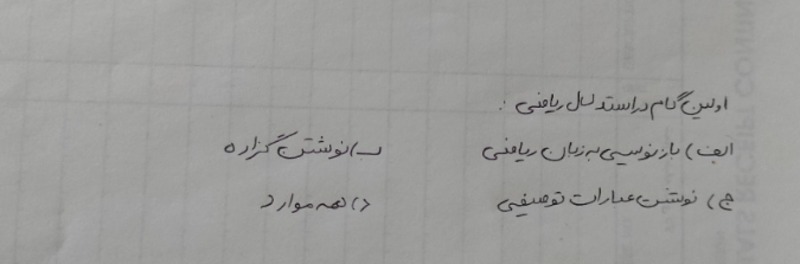 اولین گام در استدلال ریاضی :
الف) بازنویسی به زبان ریاضی ب) نوشتن گزاره
ج) نوشتن عبارات توصیفی د) همه موارد